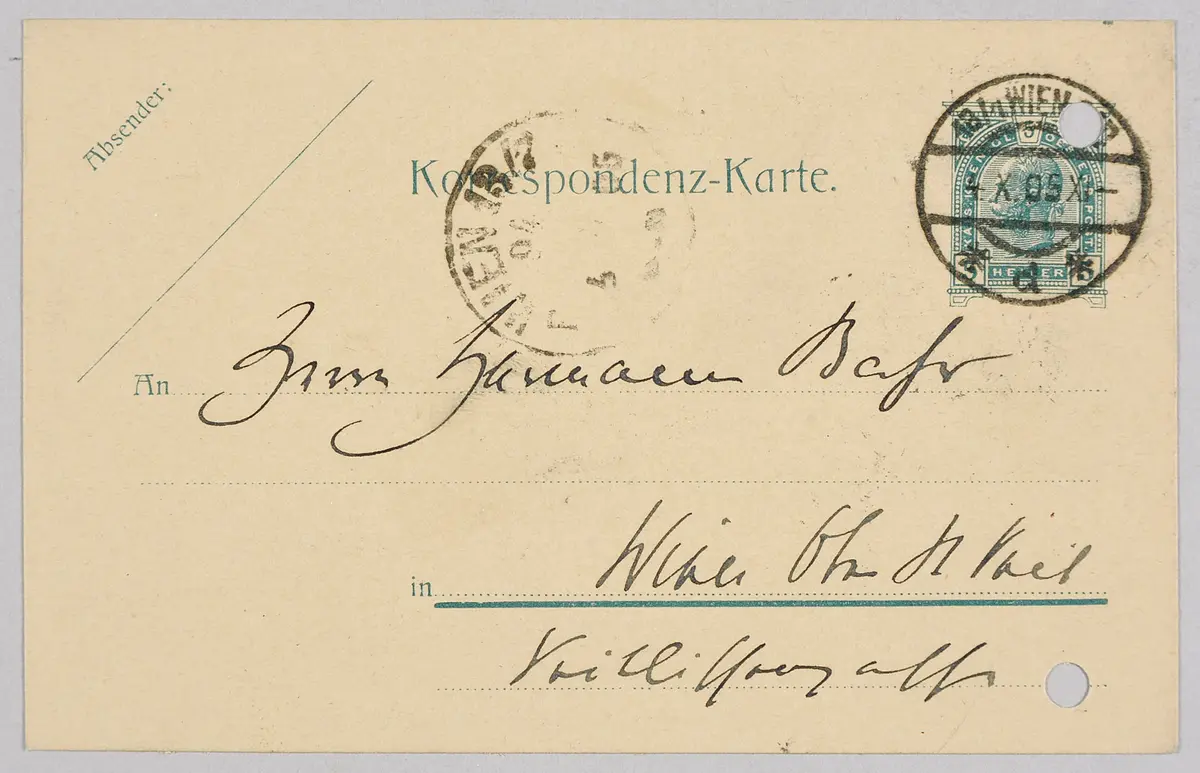 Absender:
Korrespondenz-Karte.
WIEN 13/7
WIEN
X. 05 X
d
HELLER
An Herrn Hermann Bahr
in Wien Ober St Veit
Veitlissengasse